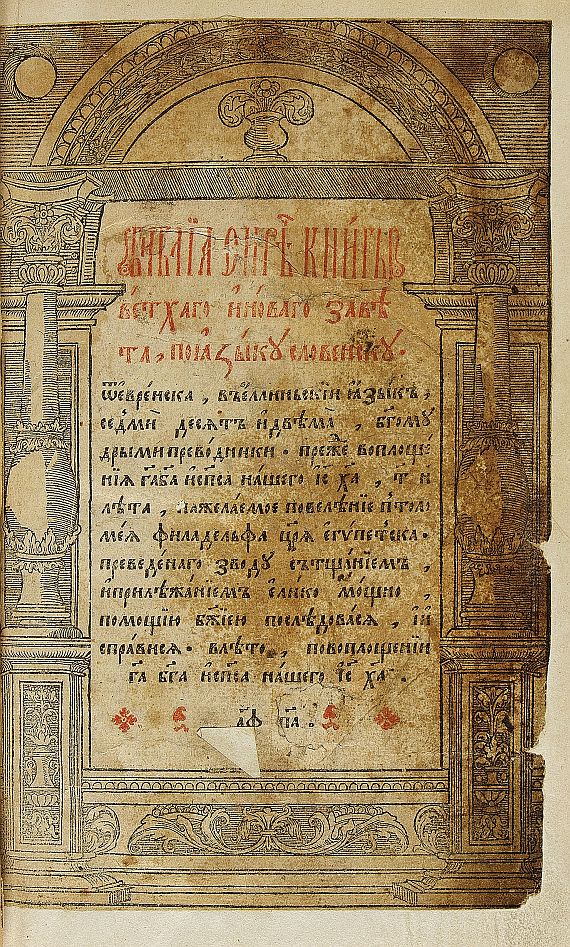 БИБЛІА СИРѢЧЬ КНИГЫ
ветхаго и новаго завѣ
та, по ꙗзыку словенску.
Ѿ еврейска, въ еллиньскїй ꙗзыкъ,
седмйю десятъ и двѣма, бг҃ому
дрыми преводники. преж̾е воплоще
нїѧ гд҃а бг҃а и сп҃са нашего іс҃ ха҃, т҃ и
лѣта, на желаемое повелѣнїе птоло
меѧ филаделфа цр҃ѧ египетска.
преведенаго зводу сътщанїемъ,
и прилѣжанїемъ елико мощно,
помощїю бж҃їею послѣдовасѧ, и и
справисѧ. в лѣто, по воплощенїи
га҃ бг҃а и сп҃са нашего іс҃ ха҃.
҂аф҃ па҃.